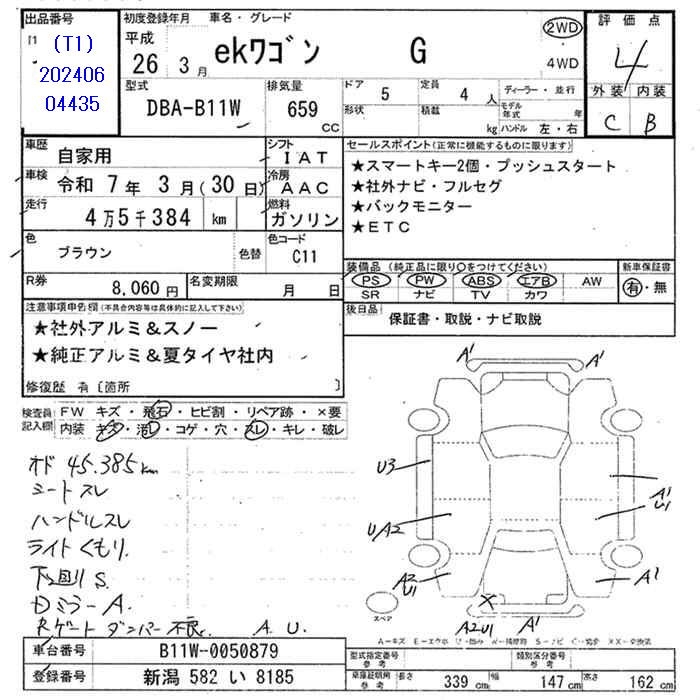 出品番号
(T1)
202406
04435
初度登録年月
車名・グレード
平成
26 3月
ekワゴン G
2WD
4WD
評価点
4
外装 内装
C B
型式
DBA-B11W
排気量
659
CC
ドア
5
定員
4 人
形状
積載
kg
ディーラー・並行
モデル年式 年
ハンドル 左・右
車歴
自家用
シフト
IAT
車検
令和 7年 3月(30日)
冷房
AAC
走行
4万5千384 km
燃料
ガソリン
色
ブラウン
色替
色コード
C11
R券
8,060円
名変期限
月 日
セールスポイント(正常に機能するものに限ります)
★スマートキー2個・プッシュスタート
★社外ナビ・フルセグ
★バックモニター
★ETC
装備品(純正品に限り○をつけてください)
PS PW ABS エアB AW
SR ナビ TV カワ
新車保証書
有・無
後日品
保証書・取説・ナビ取説
注意事項申告欄(不具合内容等は具体的に記入して下さい)
★社外アルミ&スノー
★純正アルミ&夏タイヤ社内
修復歴 有〔箇所 〕
検査員記入欄
FW キズ・飛石・ヒビ割・リペア跡・×要
内装 キズ・汚レ・コゲ・穴・スレ・キレ・破レ
オド 45.385km
シートスレ
ハンドルスレ
ライトくもり.
下回りS.
Dミラー A.
Rゲートダンパー不良. A. U.
A1 A1
U3
A1
U1
U/A2
A2
U1
A1
X
A2U1 A1
スペア
車台番号
B11W-0050879
登録番号
新潟 582 い 8185
型式指定番号
参考
類別区分番号
参考
車庫証明用
参考
長さ 339 cm
幅 147 cm
高さ 162 cm